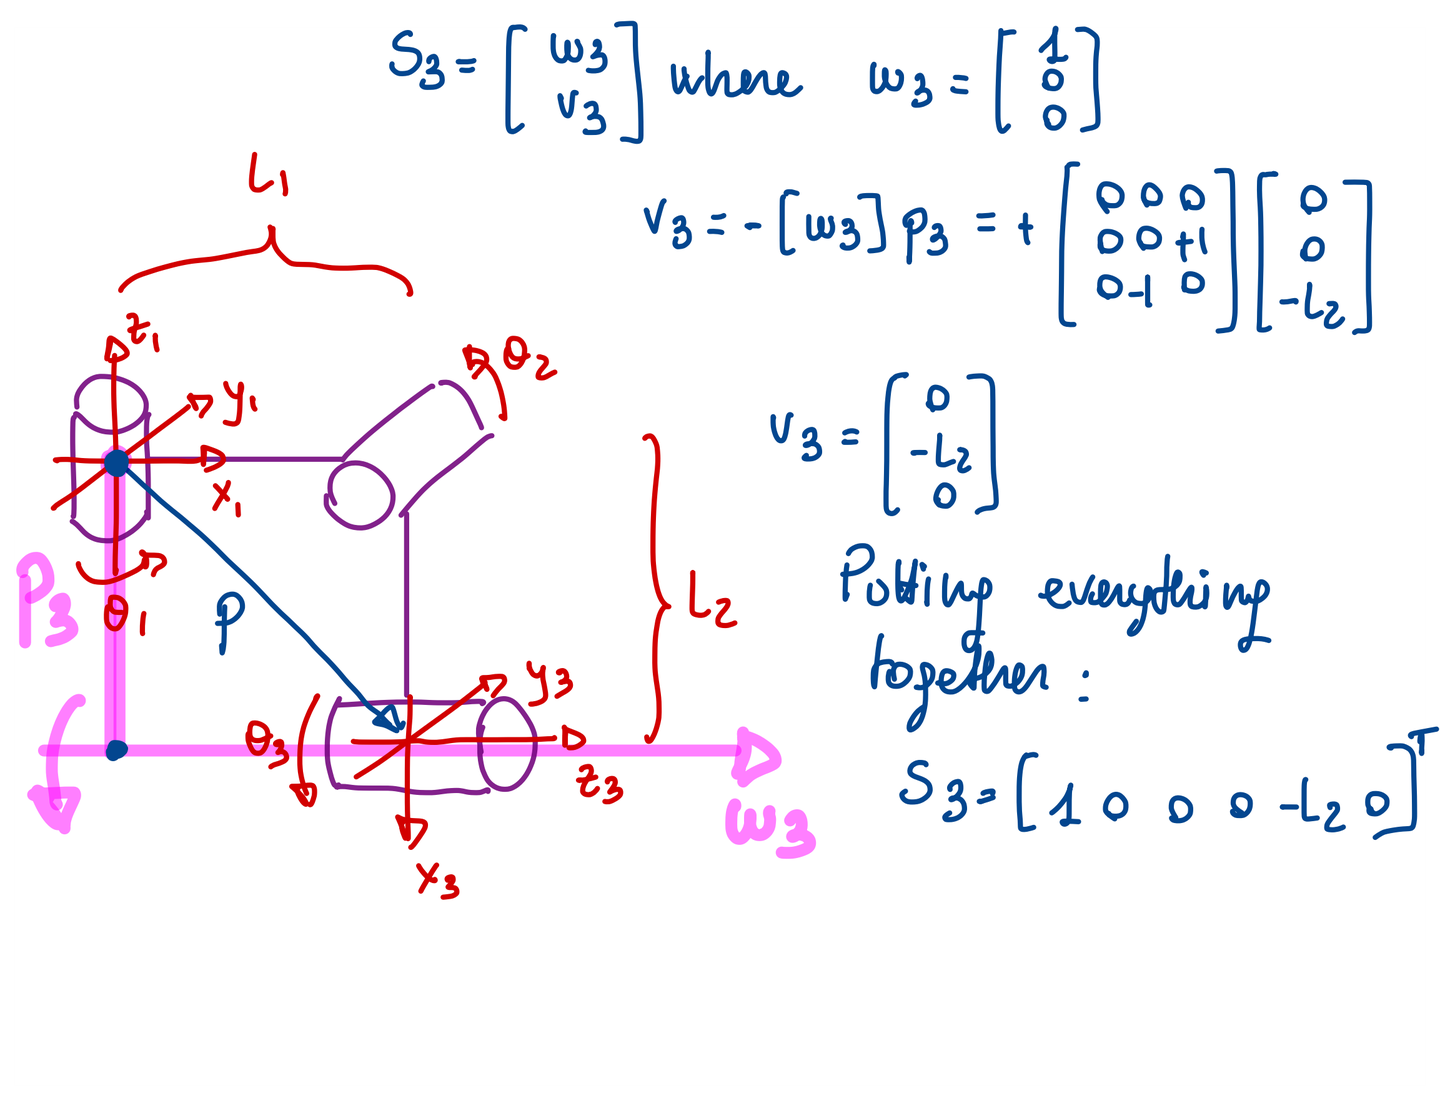 S3 = [ w3 v3 ] where w3 = [ 1 0 0 ]
v3 = - [w3] p3 = + [ 0 0 0 0 0 +1 0 -1 0 ] [ 0 0 -L2 ]
v3 = [ 0 -L2 0 ]
Putting everything
together :
S3 = [ 1 0 0 0 -L2 0 ]T
L1
z1
y1
x1
θ2
P3
θ1
p
L2
θ3
y3
z3
w3
x3